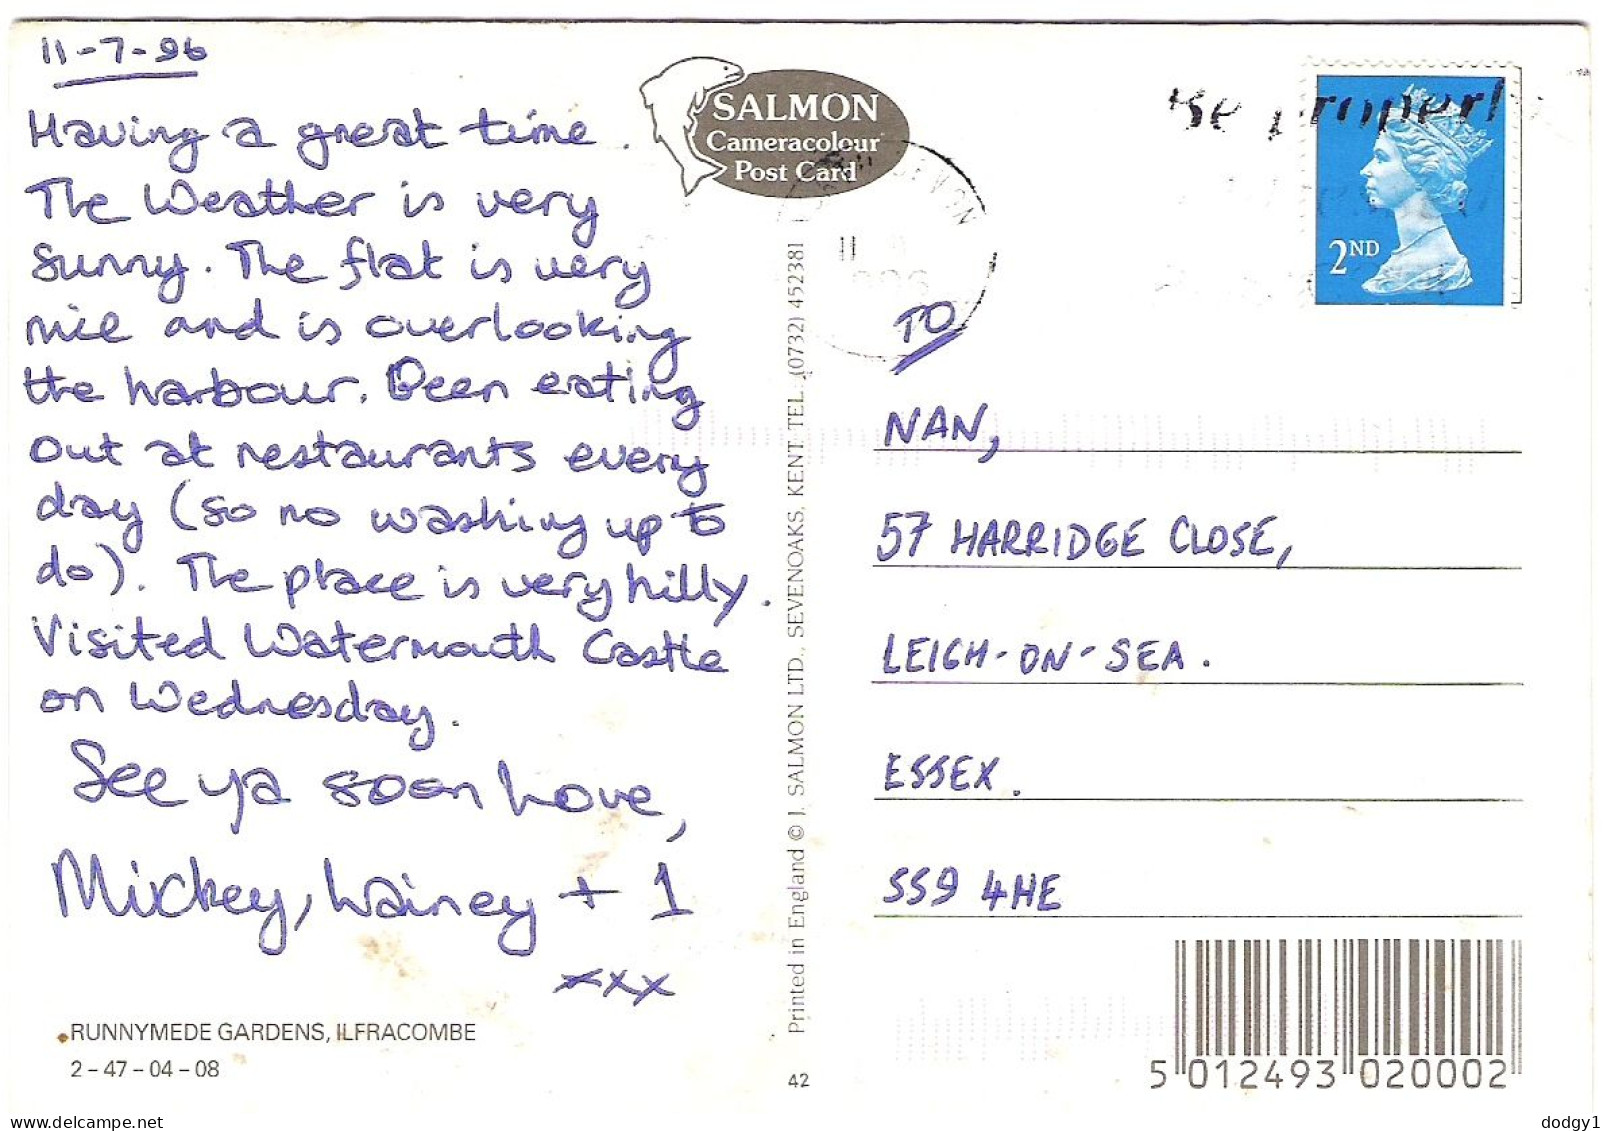 11-7-96
Having a great time.
The Weather is very
Sunny. The flat is very
nice and is overlooking
the harbour. Been eating
out at restaurants every
day (so no washing up to
do). The place is very hilly.
Visited Watermouth Castle
on Wednesday.
See ya soon Love,
Mickey, Lainey + 1
xxx
RUNNYMEDE GARDENS, ILFRACOMBE
2 - 47 - 04 - 08
SALMON
Cameracolour
Post Card
Printed in England © J. SALMON LTD., SEVENOAKS, KENT. TEL: (0732) 452381
42
DEVON
11
2ND
TO
NAN,
57 HARRIDGE CLOSE,
LEIGH-ON-SEA.
ESSEX.
SS9 4HE
5 012493 020002
dodgy1